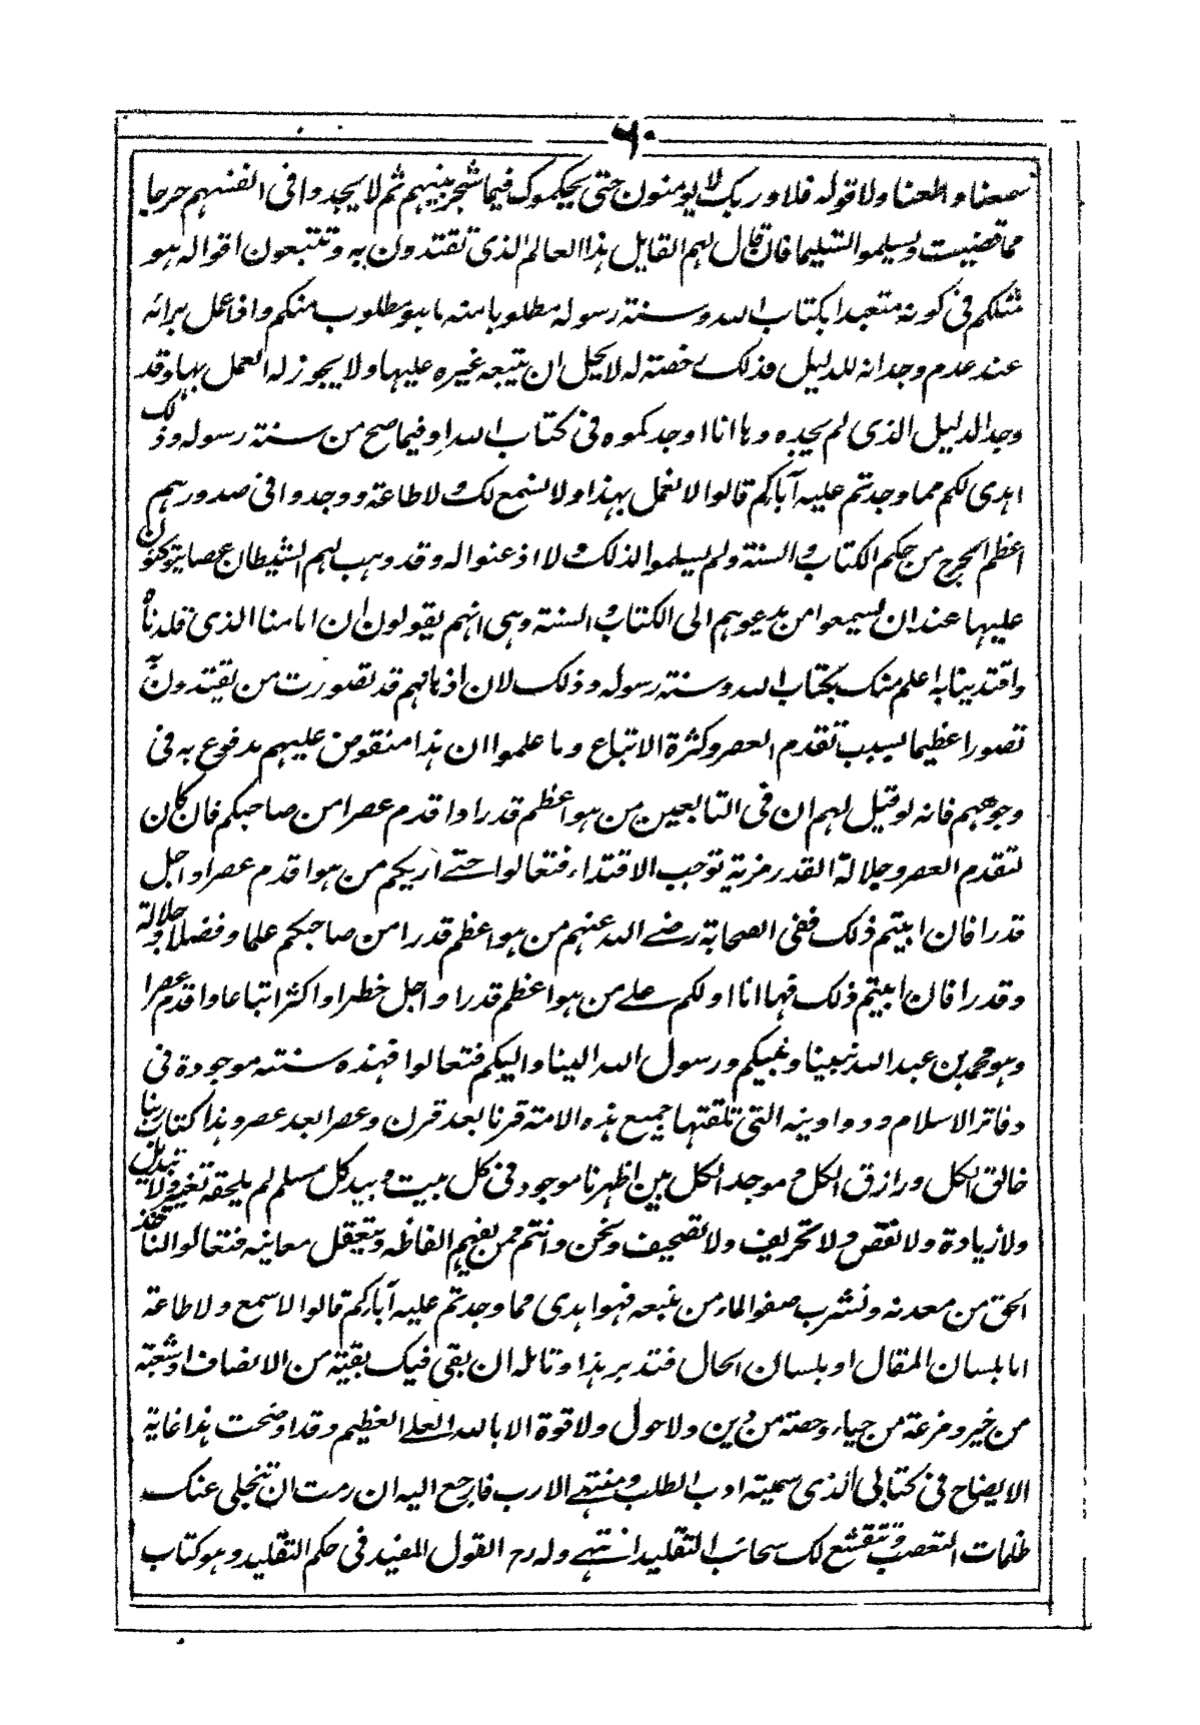 ٦٠
سمعنا واطعنا ولا قوله فلا وربك لا يومنون حتى يحكموك فيما شجر بينهم ثم لا يجدوا فى انفسهم حرجا
مما قضيت ويسلموا تسليما فان قال لهم القايل هذا العالم الذى تقتدون به وتتبعون اقواله هو
مثلكم فى كونه متعبدا بكتاب الله وسنة رسوله مطلوبا منه ما هو مطلوب منكم واذا عمل برائه
عند عدم وجدانه للدليل فذلك رخصة له لا يحل ان يتبعه غيره عليها ولا يجوز له العمل بها وقد
وجد الدليل الذى لم يجده وها انا اوجد كموه فى كتاب الله او فيما صح من سنة رسوله وذلك
اهدى لكم مما وجدتم عليه آباكم قالوا لا نعمل بهذا ولا نسمع لك ولا طاعة ووجدوا فى صدورهم
اعظم الحرج من حكم الكتاب والسنة ولم يسلموا لذلك ولا اذعنوا له وقد وهب لهم الشيطان عصا يتوكئون
عليها عند ان يسمعوا من يدعوهم الى الكتاب والسنة وهى انهم يقولون ان امامنا الذى قلدناه
واقتدينا به اعلم منك بكتاب الله وسنة رسوله وذلك لان اذهانهم قد تصورت من يقتدون به
تصورا عظيما بسبب تقدم العصر وكثرة الاتباع وما علموا ان هذا منقوض عليهم مدفوع به فى
وجوههم فانه لو قيل لهم ان فى التابعين من هو اعظم قدرا واقدم عصرا من صاحبكم فان كان
لتقدم العصر وجلالة القدر مزية توجب الاقتداء فتعالوا حتے اريكم من هو اقدم عصرا واجل
قدرا فان ابيتم ذلك ففى الصحابة رضے الله عنهم من هو اعظم قدرا من صاحبكم علما وفضلا وجلالة
وقدرا فان ابيتم ذلك فها انا اولكم علے من هو اعظم قدرا واجل خطرا واكثر اتباعا واقدم عصرا
وهو محمد بن عبد الله نبينا ونبيكم ورسول الله الينا واليكم فتعالوا فهذه سنته موجودة فى
دفاتر الاسلام ودواوينه التى تلقتها جميع هذه الامة قرنا بعد قرن وعصرا بعد عصر وهذا كتاب ربنا
خالق الكل ورازق الكل وموجد الكل بين اظهرنا موجود فى كل بيت وبيد كل مسلم لم يلحقه تغيير ولا تبديل
ولا زيادة ولا نقص ولا تحريف ولا تصحيف ونحن وانتم ممن يفهم الفاظه ويتعقل معانيه فتعالوا لناخذ
الحق من معدنه ونشرب صفو الماء من منبعه فهو اهدى مما وجدتم عليه آباركم قالوا لا سمع ولا طاعة
اما بلسان المقال او بلسان الحال فتدبر هذا وتامله ان بقى فيك بقية من الانصاف او شعبة
من خير ومزعة من حياء وحصة من دين ولا حول ولا قوة الا بالله العلے العظيم وقد اوضحت هذا غاية
الايضاح فى كتابى الذى سميته ادب الطلب ومنتهے الارب فارجع اليه ان رمت ان تنجلى عنك
ظلمات التعصب وتتقشع لك سحائب التقليد انتہے وله رح القول المفيد فى حكم التقليد وهو كتاب